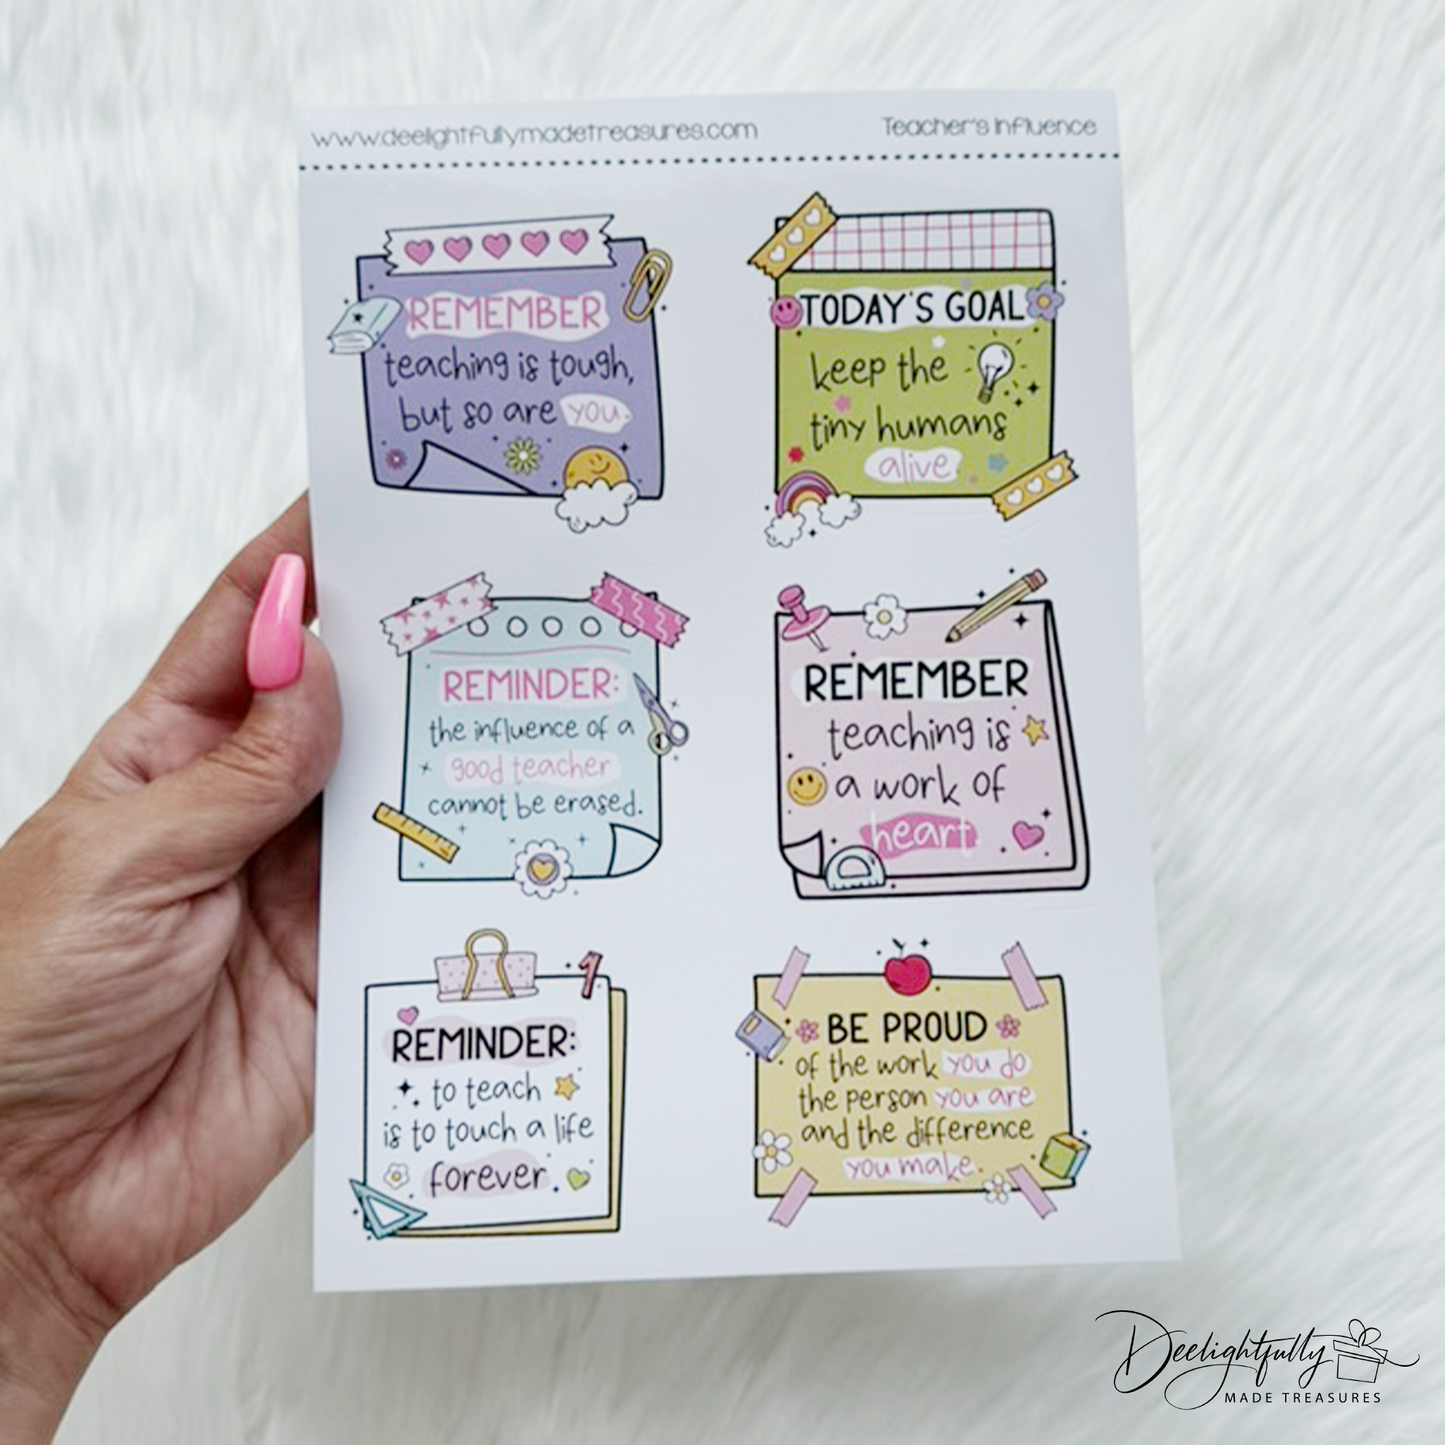 www.deelightfullymadetreasures.com
Teacher's Influence
REMEMBER
teaching is tough,
but so are you.
TODAY'S GOAL
keep the
tiny humans
alive
REMINDER:
the influence of a
good teacher
cannot be erased.
REMEMBER
teaching is
a work of
heart
1
REMINDER:
to teach
is to touch a life
forever.
BE PROUD
of the work you do
the person you are
and the difference
you make.
Deelightfully
MADE TREASURES